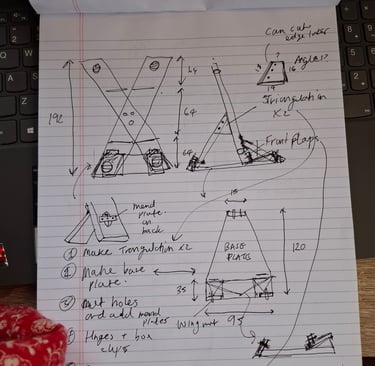 Can cut
edge later
?
Angle??
16
19
64
192
64
64
Triangulation
X2
Front flaps
mend
plate
on
back
① Make Triangulation x2
② Make base
plate.
③ holes
and add mend
plates
Hinges + box
clips
16
BASE
PLATE
120
35
Wing nut
95